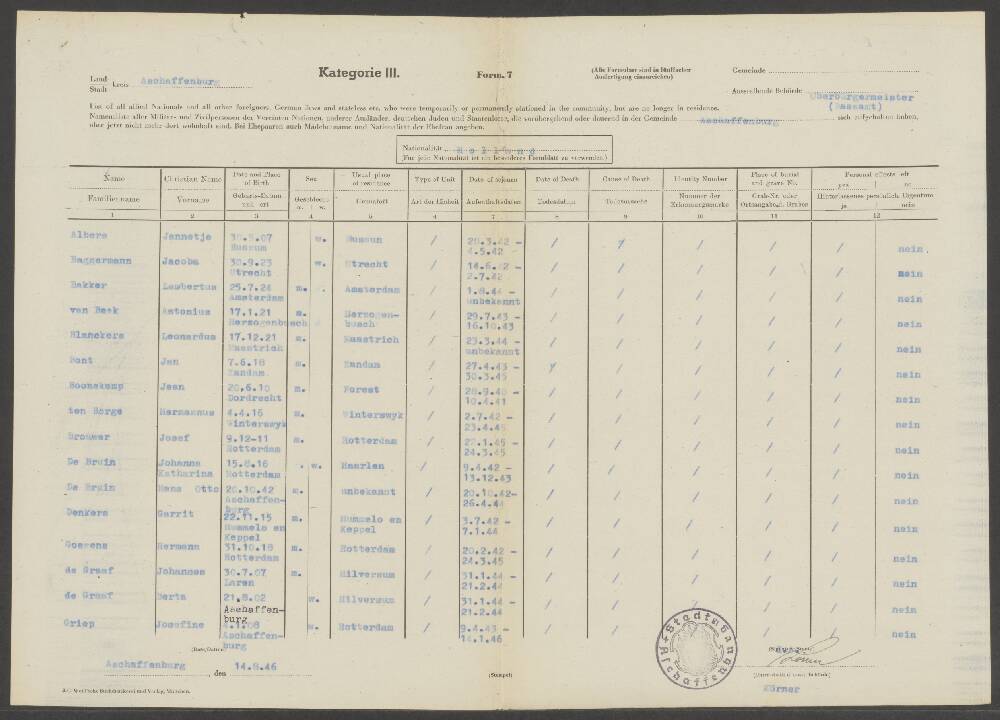 Land- Stadt- kreis Aschaffenburg
Kategorie III.
Form. 7
(Alle Formulare sind in 5facher Ausfertigung einzureichen)
Gemeinde
Ausstellende Behörde Oberbürgermeister
(Passamt)
List of all allied Nationals and all other foreigners, German Jews and stateless etc. who were temporarily or permanently stationed in the community, but are no longer in residence.
Namensliste aller Militär- und Zivilpersonen der Vereinten Nationen, anderer Ausländer, deutschen Juden und Staatenloser, die vorübergehend oder dauernd in der Gemeinde Aschaffenburg sich aufgehalten haben,
aber jetzt nicht mehr dort wohnhaft sind. Bei Ehepaaren auch Mädchenname und Nationalität der Ehefrau angeben.
Nationalität Holland
(Für jede Nationalität ist ein besonderes Formblatt zu verwenden.)
Name Christian Name Date and Place of Birth Sex Usual place of residence Type of Unit Date of sojourn Date of Death Cause of Death Identity Number Place of burial and grave No. Personal effects left yes no
Familienname Vorname Geburts-Datum und -ort Geschlecht m. w. Heimatort Art der Einheit Aufenthaltsdaten Todesdatum Todesursache Nummer der Erkennungsmarke Grab-Nr. oder Ortsangabe d. Grabes Hinterlassenes persönlich. Eigentum ja nein
1 2 3 4 5 6 7 8 9 10 11 12
Albers Jannetje w. Bussum / 20.3.42 - / / / / / nein.
Bussum 4.5.42
Baggermann Jacoba 30.9.23 w. Utrecht / 14.6.42 - / / / / / nein
Utrecht 2.7.42
Bakker Lambertus 25.7.24 m. Amsterdam / 1.8.44 - / / / / / nein
Amsterdam unbekannt
van Beek Antonius 17.1.21 m. Herzogen- / 29.7.43 - / / / / / nein
Herzogenbusch busch 16.10.43
Blanckers Leonardus 17.12.21 m. Maastrich / 23.3.44 - / / / / / nein
Maastrich unbekannt
Bont Jan 7.6.18 m. Zandam / 27.4.43 - / / / / / nein
Zandam. 30.3.45
Boonekamp Jean 20.6.10 m. Forest / 28.9.40 - / / / / / nein
Dordrecht 10.4.41
ten Berge Harmannus 4.4.16 m. Winterswyk / 2.7.42 - / / / / / nein
Winterswyk 23.4.45
Brouwer Josef 9.12-11 m. Rotterdam / 22.1.45 - / / / / / nein
Rotterdam 24.3.45
De Bruin Johanna 15.8.16 w. Haarlen / 9.4.42 - / / / / / nein
Katharina Rotterdam 13.12.43
De Bruin Hans Otto 20.10.42 m. unbekannt / 20.10.42- / / / / / nein
Aschaffen- 26.4.44
burg
Denkers Garrit 22.11.15 m. Hummelo en / 3.7.42 - / / / / / nein
Hummelo en Keppel 7.1.44
Keppel
Goewens Hermann 31.10.18 m. Rotterdam / 20.2.42 - / / / / / nein
Rotterdam 24.3.45
de Graaf Johannes 30.7.07 m. Hilversum / 31.1.44 - / / / / / nein
Laren 21.2.44
de Graaf Berta 21.8.02 w. Hilversum / 31.1.44 - / / / / / nein
Aschaffen- 21.2.44
burg
Griep Josefine 4.1.08 w. Rotterdam / 9.4.43 - / / / / / nein
Aschaffen- 14.1.46
burg
(Date/Datum)
Aschaffenburg, den 14.8.46
(Stempel)
Stadtrat Aschaffenburg
(Unterschrift d. ausst. Behörde)
Körner